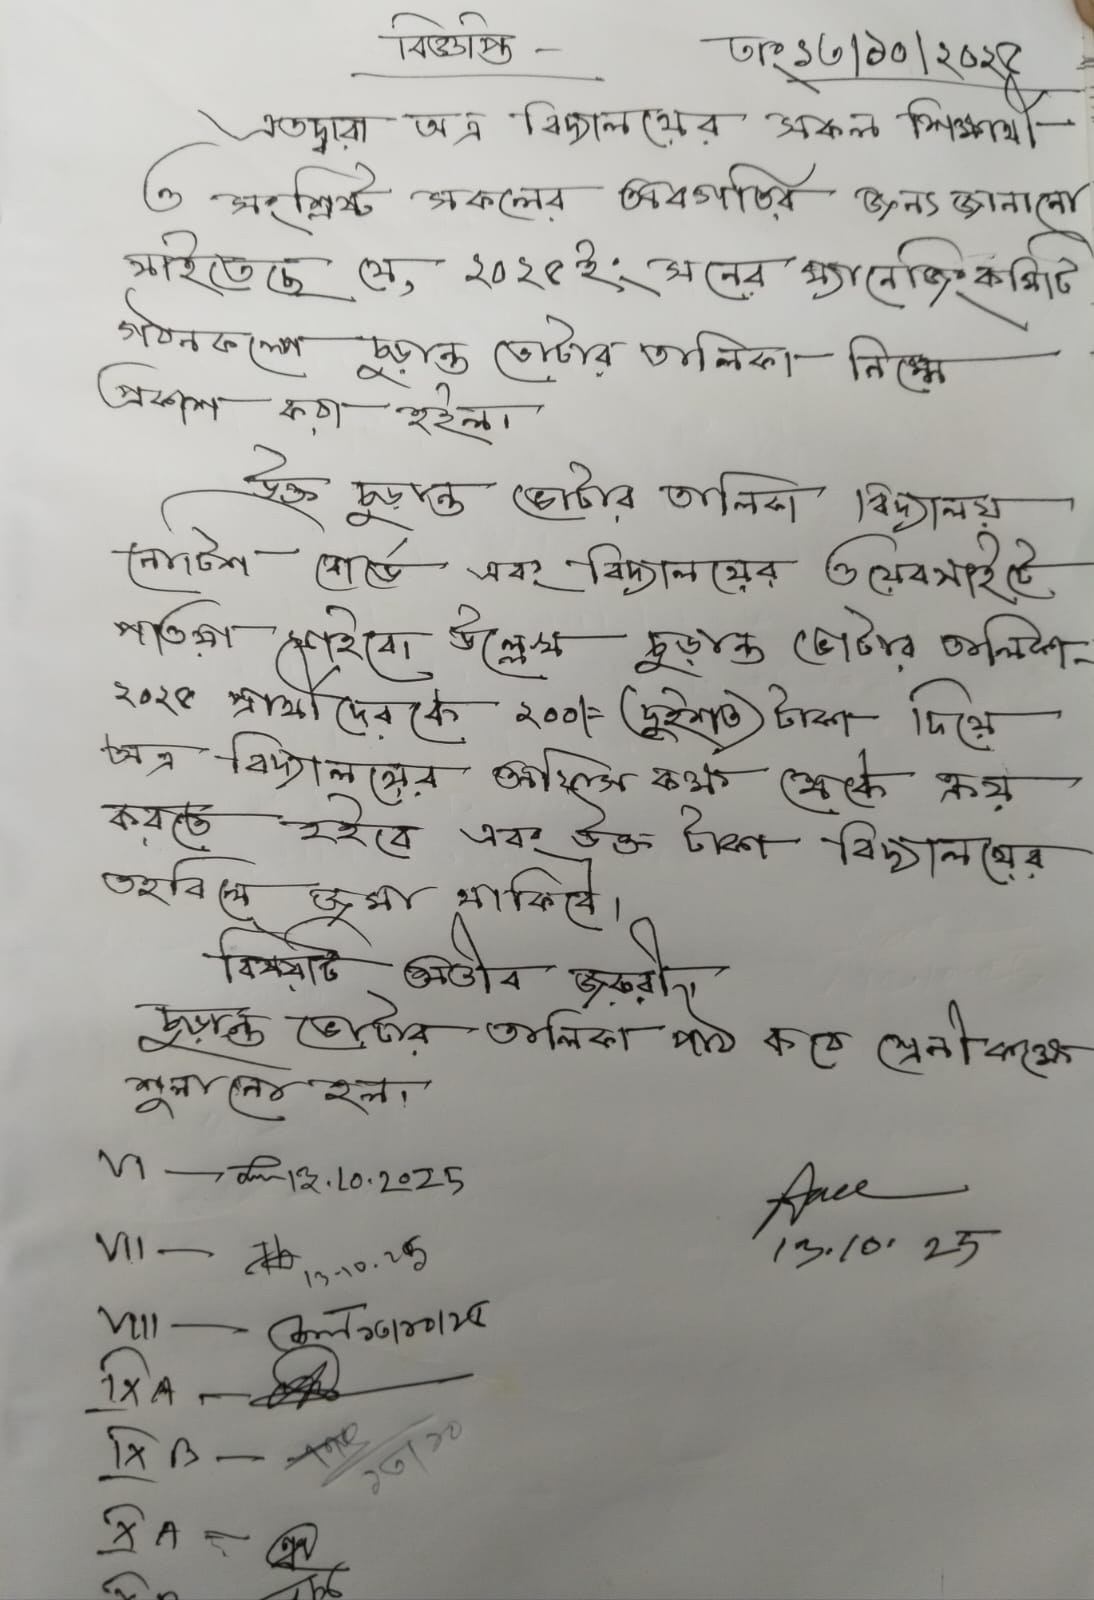 বিজ্ঞপ্তি - তাং ১৩/১০/২০২৫
এতদ্বারা অত্র বিদ্যালয়ের সকল শিক্ষার্থী
ও সংশ্লিষ্ট সকলের অবগতির জন্য জানানো
যাইতেছে যে, ২০২৫ ইং সনের ম্যানেজিং কমিটি
গঠনকল্পে চুড়ান্ত ভোটার তালিকা নিম্নে
প্রকাশ করা হইল।
উক্ত চুড়ান্ত ভোটার তালিকা বিদ্যালয়
নোটিশ বোর্ডে এবং বিদ্যালয়ের ওয়েবসাইটে
পাওয়া যাইবে। উল্লেখ্য চুড়ান্ত ভোটার তালিকা-
২০২৫ প্রার্থীদেরকে ২০০/= (দুইশত) টাকা দিয়ে
অত্র বিদ্যালয়ের অফিস কক্ষ থেকে ক্রয়
করতে হইবে এবং উক্ত টাকা বিদ্যালয়ের
তহবিলে জমা থাকিবে।
বিষয়টি অতীব জরুরী।
চুড়ান্ত ভোটার তালিকা পাঠ করে শ্রেনী কক্ষে
শুনানো হল।
VI — 13.10.2025
VII — 13.10.25
13.10.25
VIII — ১৩/১০/২৫
IX A —
IX B — ১৩/১০
X A —